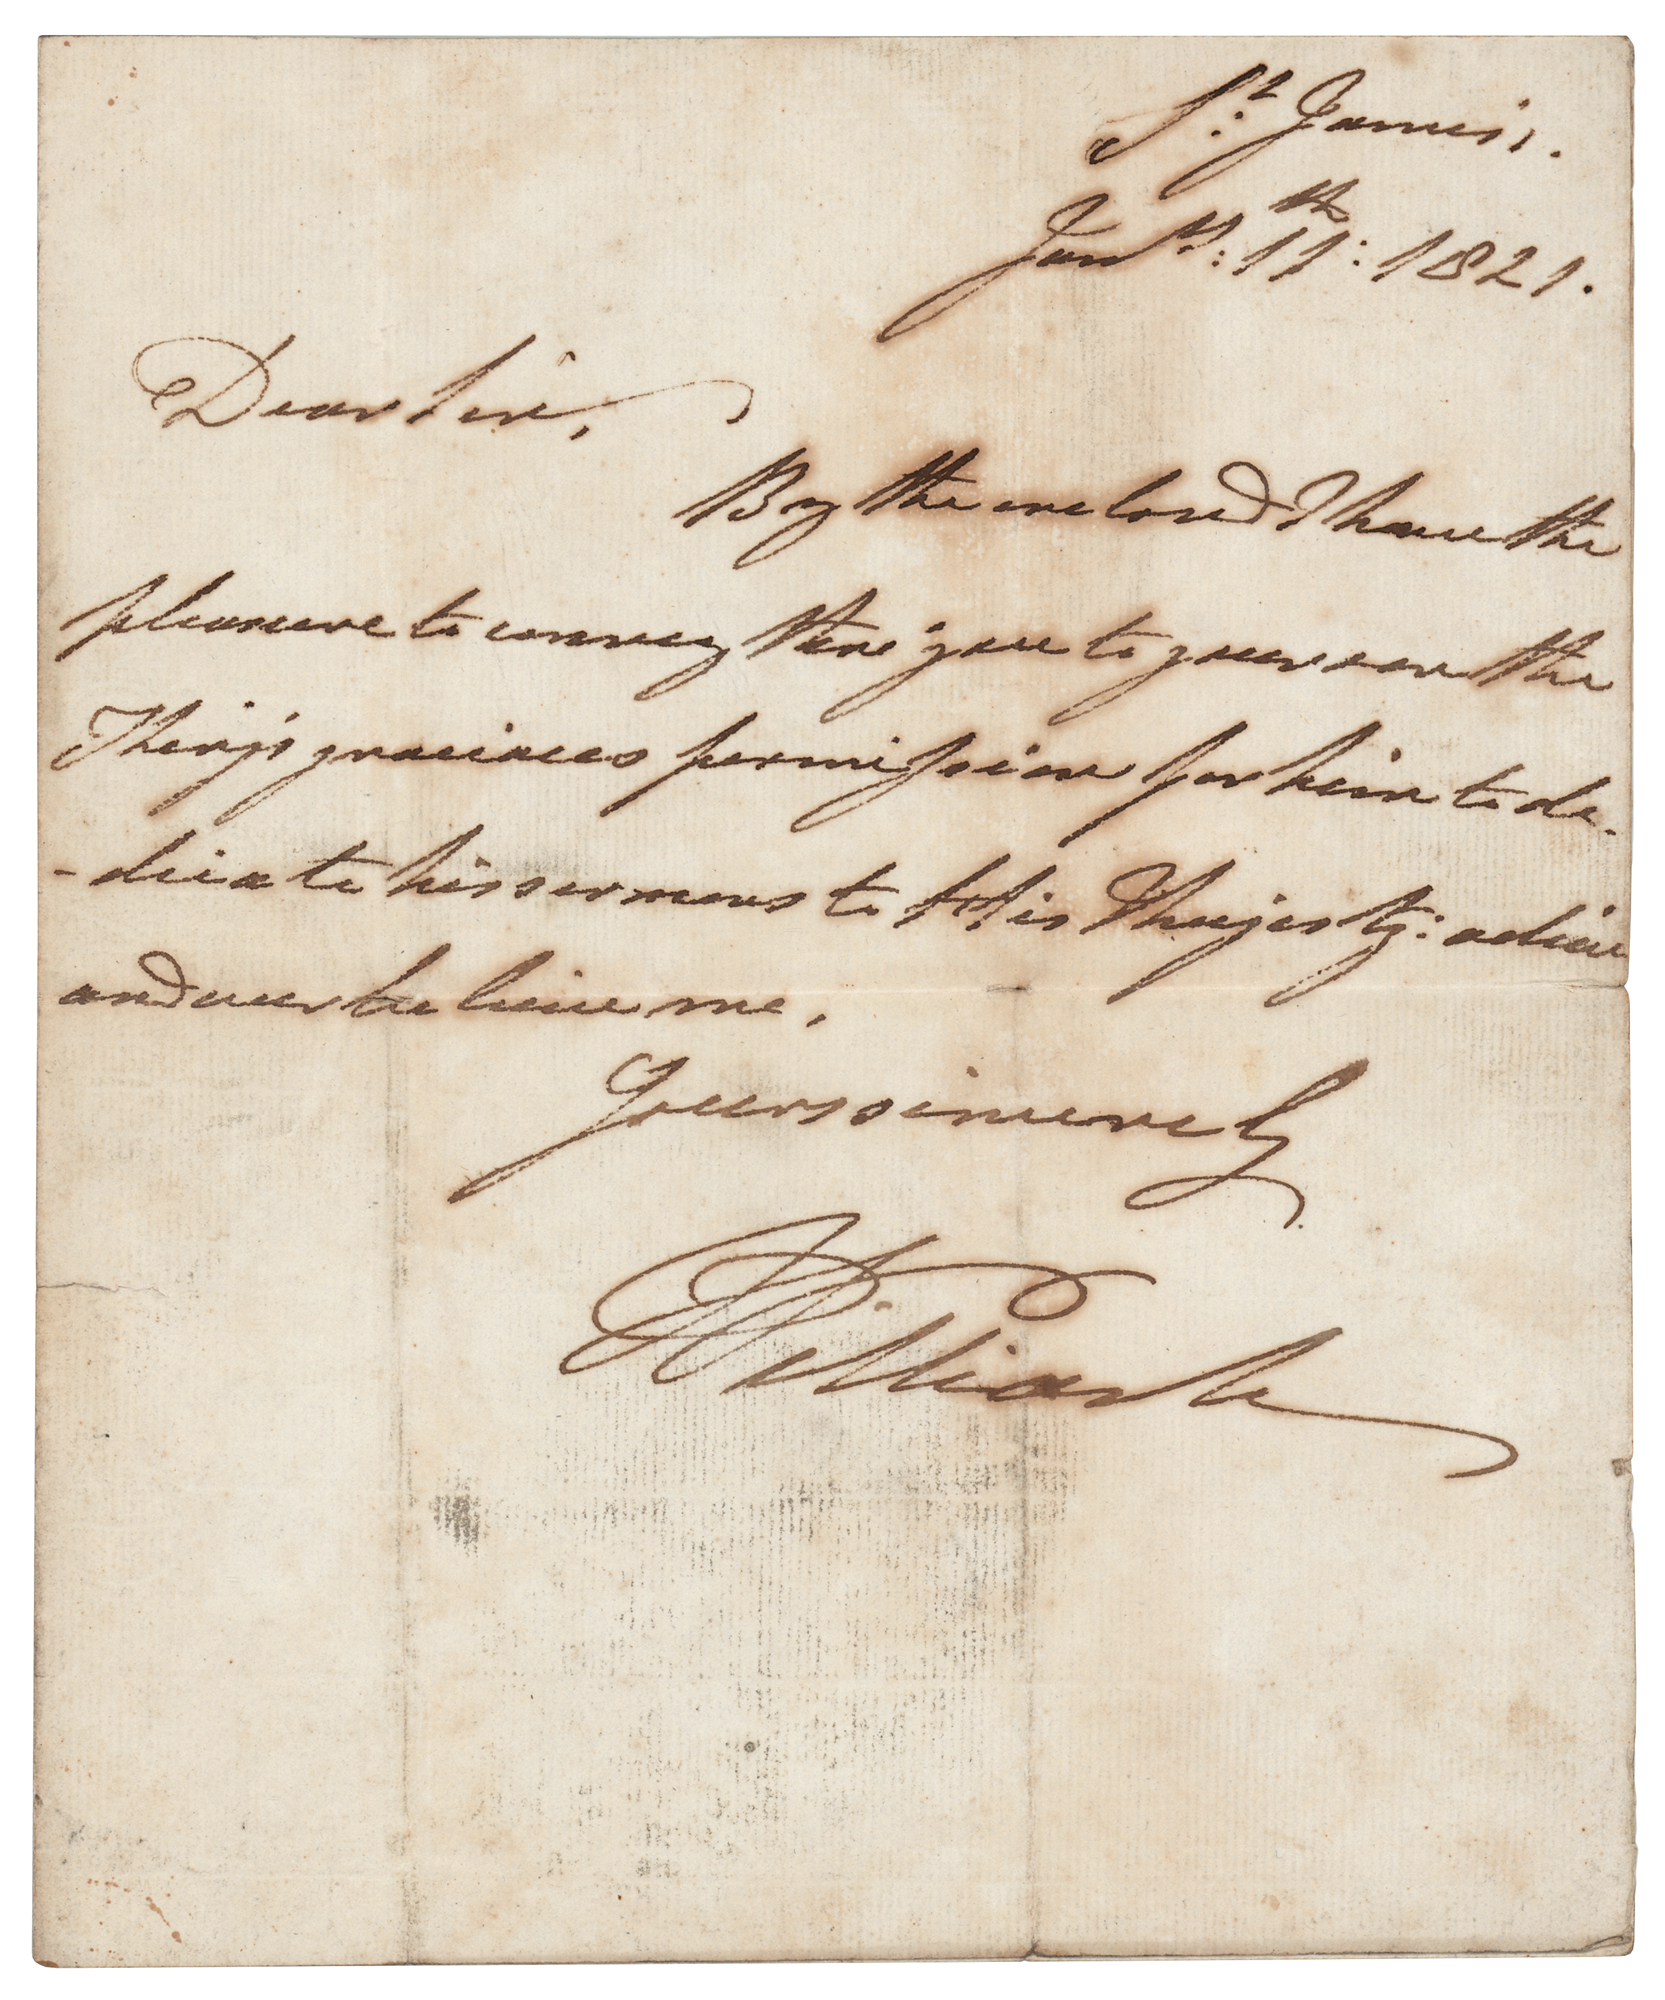 St: James's.
Jany: 11th: 1821.
Dear Sir,
By the enclosed I have the
pleasure to convey thro' you to your son the
King's gracious permission for him to de-
-dicate his sermons to His Majesty: adieu
and ever believe me,
Yours sincerely
William